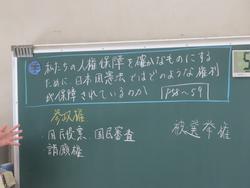 私たちの人権保障を確かなものにする
ために日本国憲法ではどのような権利
が保障されているのか P58〜59
参政権
国民投票 国民審査
請願権
被選挙権